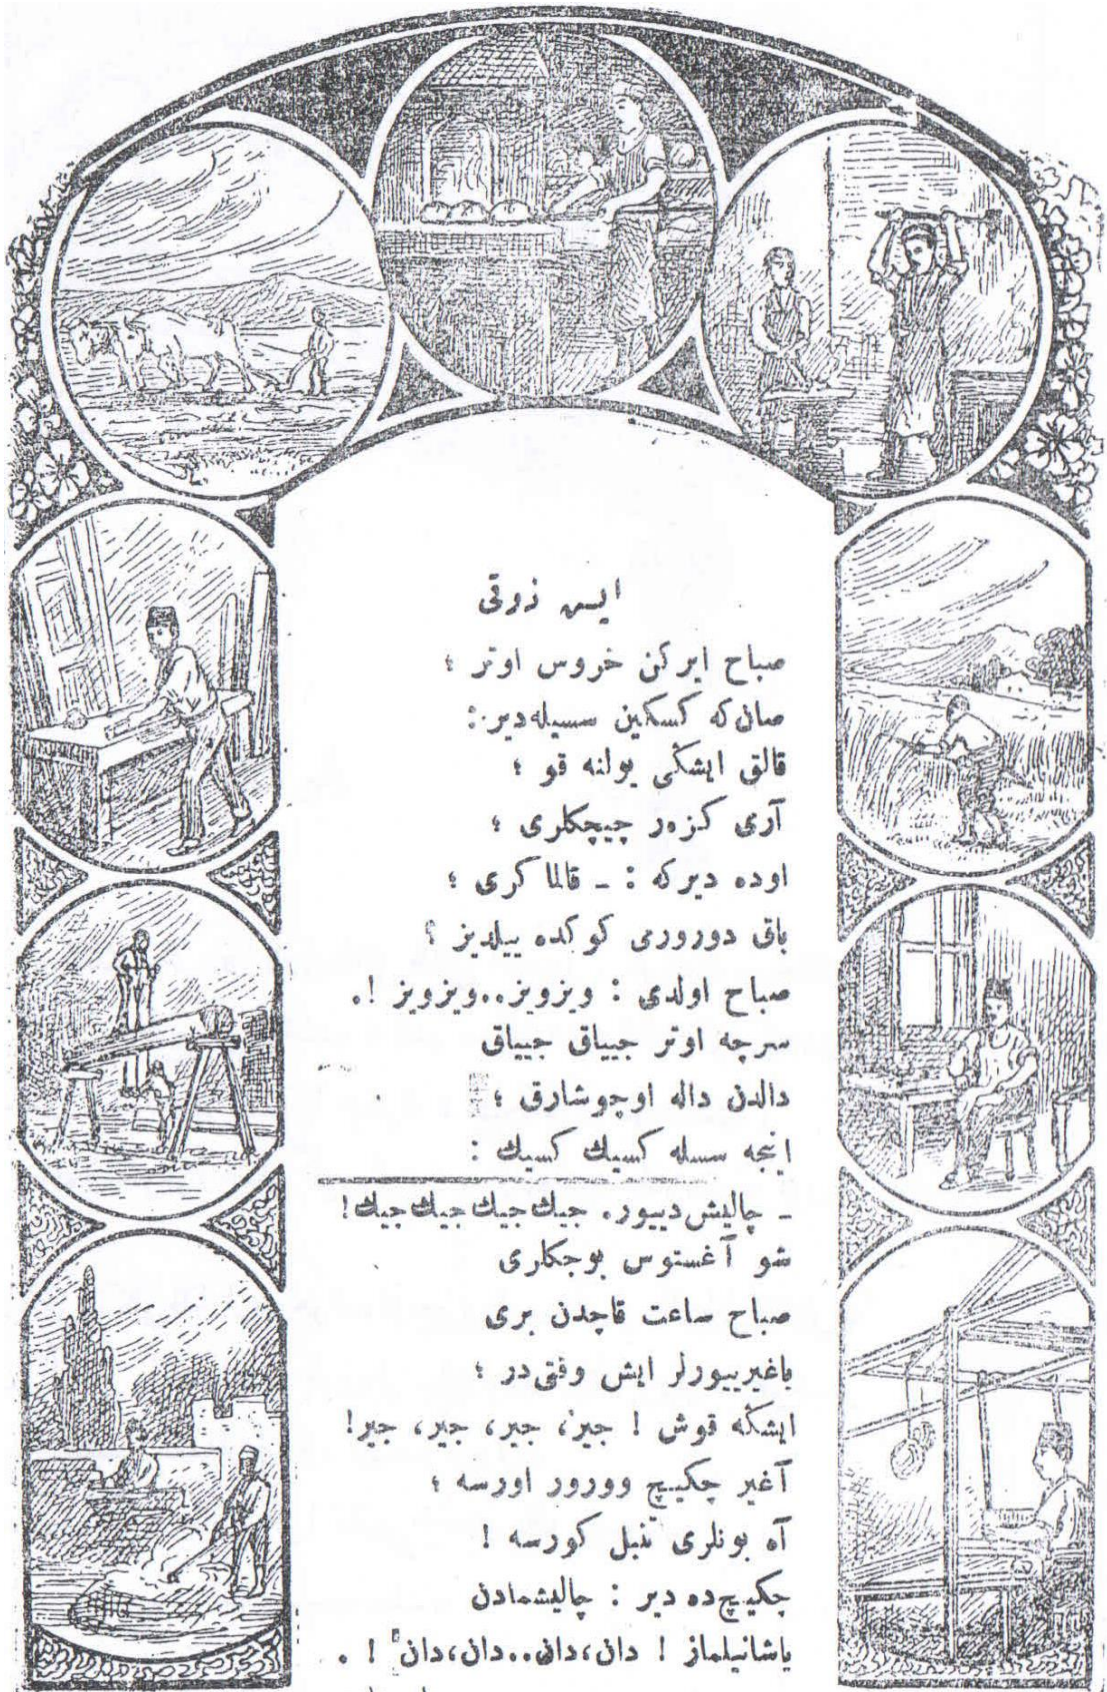 ايش ذوقی
صباح ايركن خروس اوتر ؛
صان‌كه كسكين سسيله‌دير :
قالق ايشڭی يولنه قو ؛
آری كزه‌ر چيچكلری ؛
اوده ديركه : ـ قالما كری ؛
باق دورورمی كوكده ييلديز ؟
صباح اولدی : ويزويز..ويزويز !.
سرچه اوتر جيياق جيياق
دالدن داله اوچوشارق ؛
اينجه سسله كسيك كسيك :
ـ چاليش‌دييور. جيك‌جيك‌جيك‌جيك!
شو آغستوس بوجكلری
صباح ساعت قاچدن بری
باغيرييورلر ايش وقتی‌در ؛
ايشڭه قوش ! جير، جير، جير، جير!
آغير چكيچ وورور اورسه ؛
آه بونلری تنبل كورسه !
چكيچ‌ده دير : چاليشمادن
ياشانيلماز ! دان،دان..دان،دان ! .